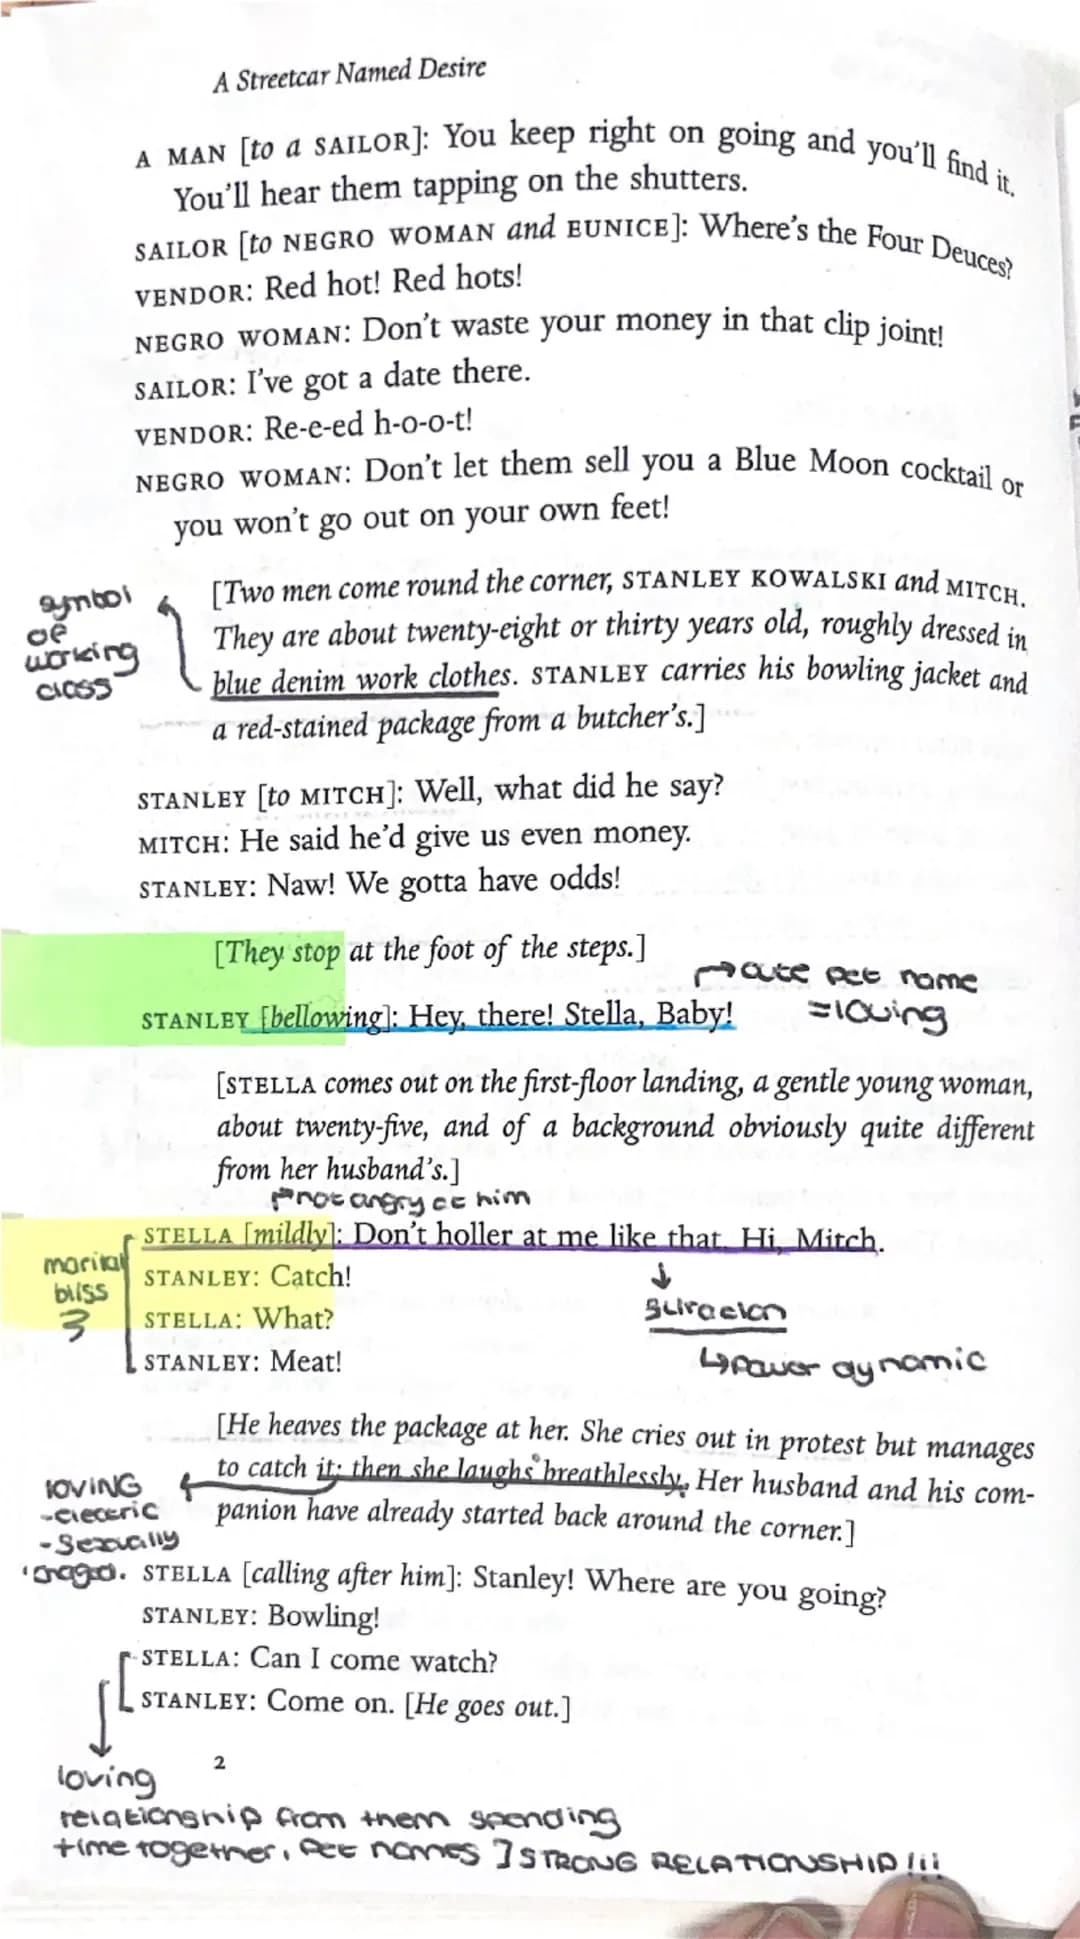 A Streetcar Named Desire
A MAN [to a SAILOR]: You keep right on going and you'll find it.
You'll hear them tapping on the shutters.
SAILOR [to NEGRO WOMAN and EUNICE]: Where's the Four Deuces?
VENDOR: Red hot! Red hots!
NEGRO WOMAN: Don't waste your money in that clip joint!
SAILOR: I've got a date there.
VENDOR: Re-e-ed h-o-o-t!
NEGRO WOMAN: Don't let them sell you a Blue Moon cocktail or
you won't go out on your own feet!
symbol
of
working
class
[Two men come round the corner, STANLEY KOWALSKI and MITCH.
They are about twenty-eight or thirty years old, roughly dressed in
blue denim work clothes. STANLEY carries his bowling jacket and
a red-stained package from a butcher's.]
STANLEY [to MITCH]: Well, what did he say?
MITCH: He said he'd give us even money.
STANLEY: Naw! We gotta have odds!
[They stop at the foot of the steps.]
→cute pet name
=loving
STANLEY [bellowing]: Hey, there! Stella, Baby!
[STELLA comes out on the first-floor landing, a gentle young woman,
about twenty-five, and of a background obviously quite different
from her husband's.]
not angry at him
STELLA [mildly]: Don't holler at me like that. Hi, Mitch.
marital
bliss
STANLEY: Catch!
STELLA: What?
STANLEY: Meat!
↳power dynamic
[He heaves the package at her. She cries out in protest but manages
to catch it; then she laughs breathlessly. Her husband and his com-
panion have already started back around the corner.]
loving
-electric
-sexually
STELLA [calling after him]: Stanley! Where are you going?
STANLEY: Bowling!
STELLA: Can I come watch?
STANLEY: Come on. [He goes out.]
2
loving
relationship from them spending
time together, pet names ] STRONG RELATIONSHIP!!!